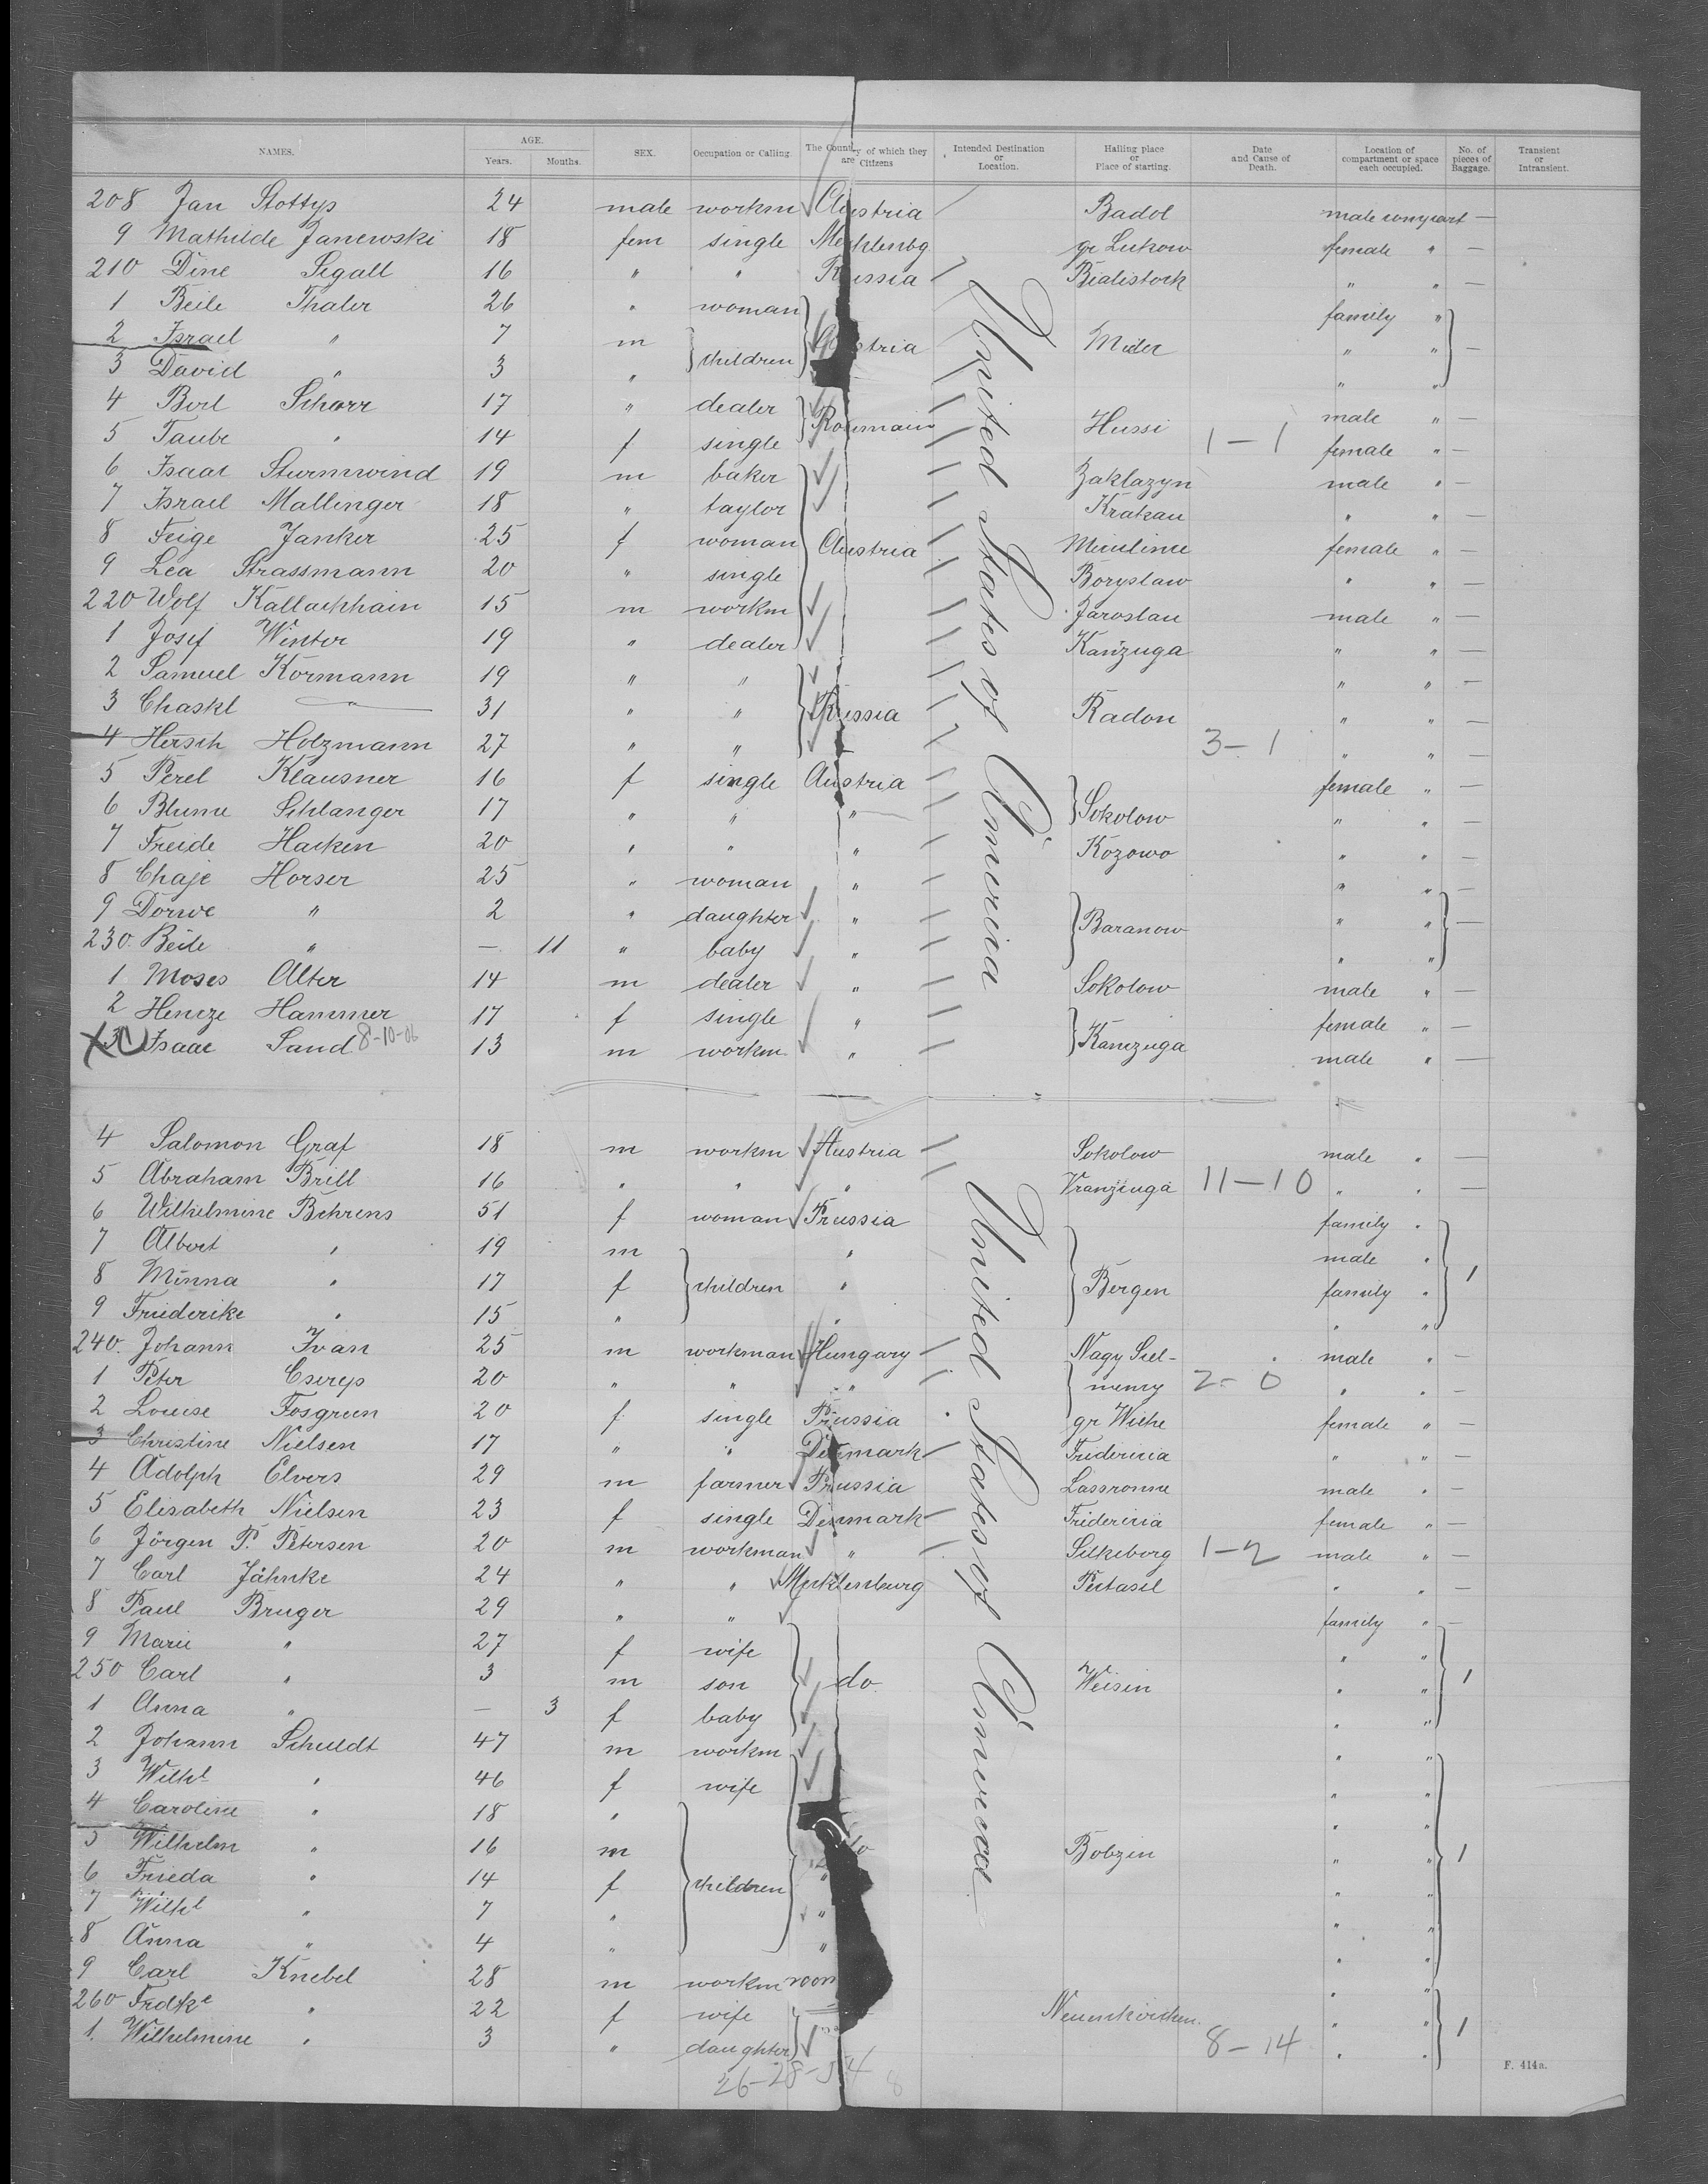 NAMES. AGE. Years. Months. SEX. Occupation or Calling. The Country of which they are Citizens Intended Destination or Location. Hailing place or Place of starting. Date and Cause of Death. Location of compartment or space each occupied. No. of pieces of Baggage. Transient or Intransient.
208 Jan Stottys 24 male workm Austria Badol male compart —
9 Mathilde Janewski 18 fem single Mecklenbg gr Lukow female " —
210 Dine Segall 16 " " Russia Bialistock " " —
1 Beile Thaler 26 " woman family "
2 Israel " 7 m children Austria Mielec " " —
3 David " 3 " " "
4 Berl Schorr 17 " dealer Roumain Hussi male " —
5 Taube " 14 f single 1-1 female " —
6 Isaac Sturmwind 19 m baker Zaklazyn male " —
7 Israel Mallinger 18 " taylor Krakau " " —
8 Feige Janker 25 f woman Austria female " —
9 Lea Strassmann 20 " single Boryslaw " " —
220 Wolf Kallachhain 15 m workm Jaroslau male " —
1 Josef Winter 19 " dealer Kanzuga " " —
2 Samuel Kormann 19 " " " " —
3 Chaskl " 31 " " Russia Radon " " —
4 Hersch Holzmann 27 " " 3-1 " " —
5 Perel Klausner 16 f single Austria female " —
6 Blume Schlanger 17 " " " Sokolow " " —
7 Freide Hacken 20 " " " Kozowo " " —
8 Chaje Horser 25 " woman " " " —
9 Dorwe " 2 " daughter " Baranow " " —
230. Beile " — 11 " baby " " "
1 Moses Alter 14 m dealer " Sokolow male " —
2 Hencze Hammer 17 f single " female " —
3 Isaac Sand 8-10-06 13 m workm " Kanczuga male " —
United States of America
4 Salomon Graf 18 m workm Austria Sokolow male " —
5 Abraham Brill 16 " " " 11-10 " " —
6 Wilhelmine Behrens 51 f woman Prussia family "
7 Albert " 19 m " male "
8 Minna " 17 f children " Bergen family " 1
9 Friederike " 15 " " " "
240. Johann Ivan 25 m workman Hungary Nagy Szel- male " —
1 Peter Cserep 20 " " " mency 2-0 " " —
2 Louise Fosgrun 20 f single Prussia gr Wiehe female " —
3 Christine Nielsen 17 " " Denmark Fridericia " " —
4 Adolph Elvers 29 m farmer Prussia Lassronne male " —
5 Elisabeth Nielsen 23 f single Denmark Fridericia female " —
6 Jörgen P. Petersen 20 m workman " Silkeborg 1-2 male " —
7 Carl Jähnke 24 " " Mecklenburg " " —
8 Paul Bruger 29 " " family " —
9 Marie " 27 f wife " "
250 Carl " 3 m son do Weisin " " 1
1 Anna " — 3 f baby " "
2 Johann Schuldt 47 m workm " "
3 Wilhl " 46 f wife " "
4 Caroline " 18 " " "
5 Wilhelm " 16 m do Bobzin " " 1
6 Frieda " 14 f children " " "
7 Wilhl " 7 " " " "
8 Anna " 4 " " " "
9 Carl Knebel 28 m workm " "
260 Fredke " 22 f wife Neuenkirchen " " 1
1. Wilhelmine " 3 " daughter 8-14 " "
United States of America
26-28-54 8
F. 414a.